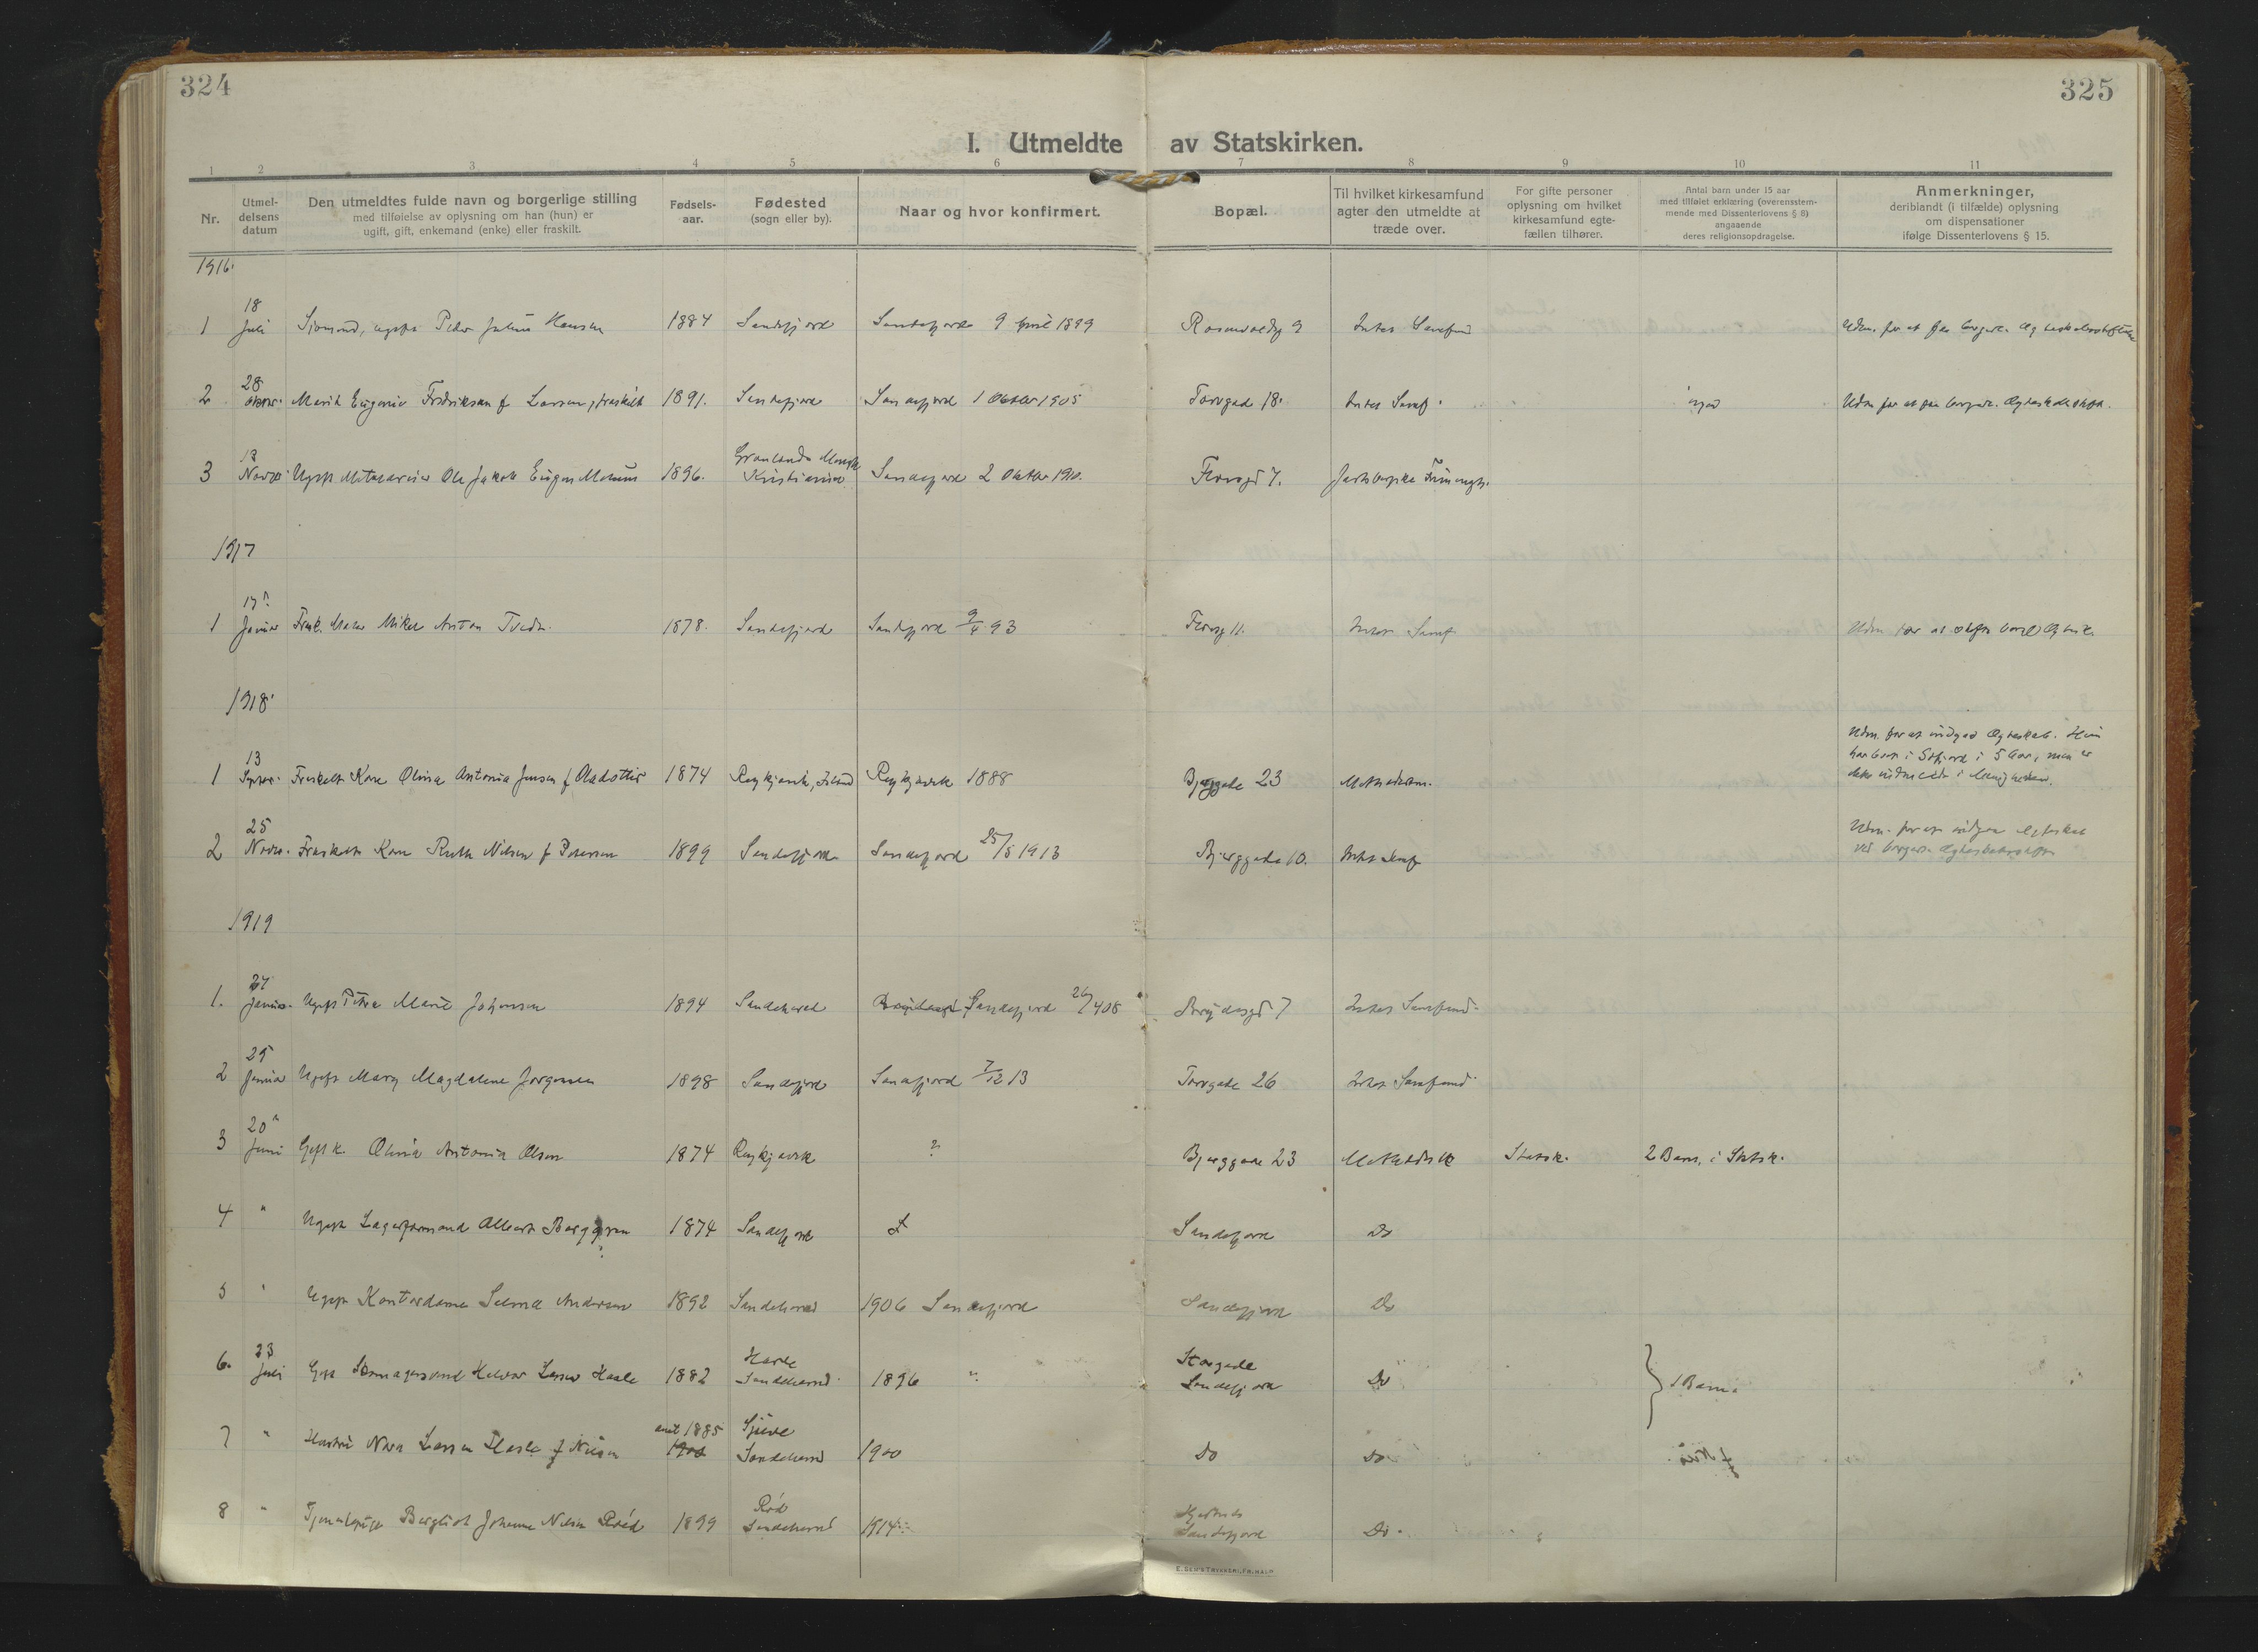 324
325
I. Utmeldte av Statskirken.
1 2 3 4 5 6 7 8 9 10 11
Nr.
Utmel-
delsens
datum
Den utmeldtes fulde navn og borgerlige stilling
med tilføielse av oplysning om han (hun) er
ugift, gift, enkemand (enke) eller fraskilt.
Fødsels-
aar.
Fødested
(sogn eller by).
Naar og hvor konfirmert.
Bopæl.
Til hvilket kirkesamfund
agter den utmeldte at
træde over.
For gifte personer
oplysning om hvilket
kirkesamfund egte-
fællen tilhører.
Antal barn under 15 aar
med tilføiet erklæring (overensstem-
mende med Dissenterlovens § 8)
angaaende
deres religionsopdragelse.
Anmerkninger,
deriblandt (i tilfælde) oplysning
om dispensationer
ifølge Dissenterlovens § 15.
1916.
18
1 Juli Sjømand, ugift Peder Julius Hansen 1884 Sandefjord Sandefjord 9 April 1899 Rosenvoldsg 9 Intet Samfund Udm. for at faa borgerl.
28
2 Oktbr. Marie Eugenie Fredriksen f Larsen, fraskilt 1891. Sandefjord Sandefjord 1 Oktober 1905 Torvgade 18. Intet Samf. Udm for at faa borgerl.
13
3 Novbr. Ugift Ole Jakob Eugen 1896. Grønlands Menigh Kristiania Sandefjord 2 Oktober 1910. 7.
1917
17
1 Januar Mikal Anton 1878. Sandefjord Sandefjord 9/4 93 11. Intet Samf. Udm for at
1918.
Udm. for at indgaa Ægteskab. Hun
har boet i Sdfjord i 5 Aar, men er
ikke indmeldt i Menigheden.
13
1 Septbr. Fraskilt Kone Olina Antonia Jensen f Oladottir 1874 Reykjavik, Island Reykjavik 1888 Bjerggade 23 Methodistsam.
25
2 Novbr. Fraskilt Kone Ruth Nilsen f Petersen 1899 Sandefjord Sandefjord 25/5 1913 Bjerggade 10. Intet Samf Udm. for at indgaa Ægteskab
ved borgerl.
1919
27
1. Januar. Ugift Petra Marie Johansen 1894 Sandeherred Sandefjord 26/4 08 Brydesgd 7 Intet Samfund.
25
2 Januar Ugift Mary Magdalene Jørgensen 1898 Sandefjord Sandefjord 7/12 13 Torvgade 26 Intet Samfund
20
3 Juni Gift K. Olina Antonia Olsen 1874 Reykjavik ? Bjerggade 23 Methodistk Statsk. 2 Barn, i Statsk.
4 " Ugift Lagerformand Albert Berggren 1874 Sandefjord Sandefjord Do
5 " Ugift Kontordame Selma Andersen 1892 Sandeherred 1906 Sandefjord Sandefjord Do
23
6. Juli Gift Larsen Hasle 1882 Hasle Sandeherred 1896 " Storgade Sandefjord Do 1 Barn
7 " Hustru Nora Larsen Hasle f Nilsen 1885 Sandeherred 1900 Do Do
8 " Bergliot Johanne Nilsen Rød 1899 Rød Sandeherred 1914 Hjertnes Sandefjord Do.